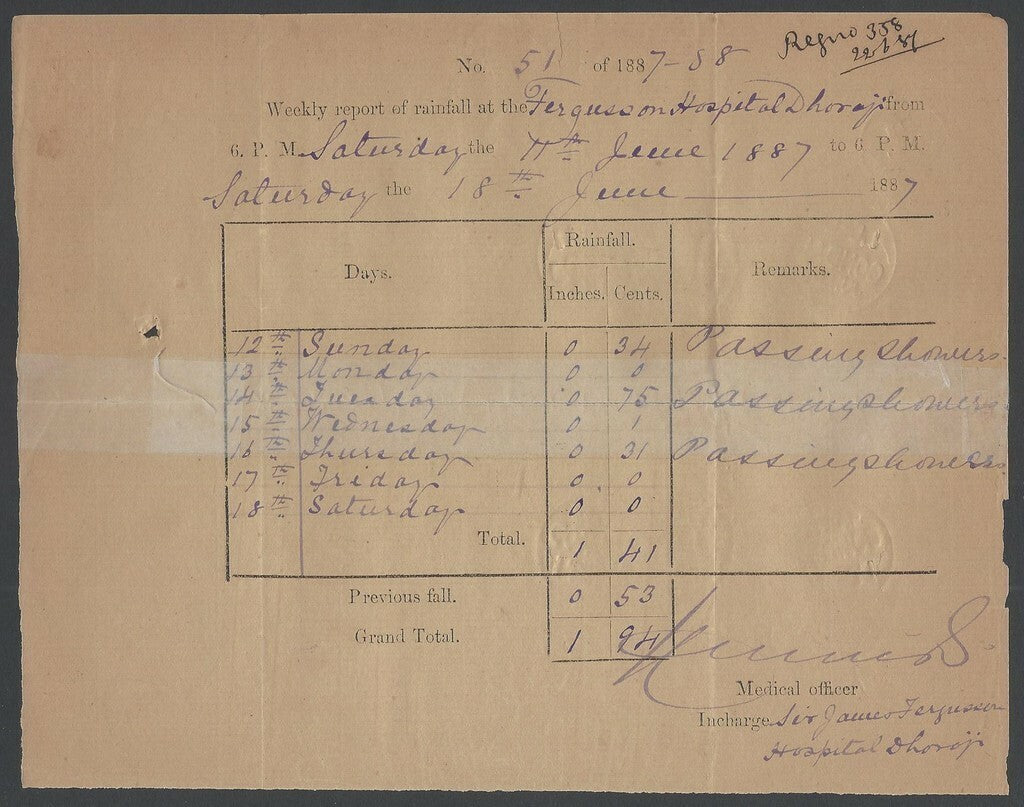 Regno 358
22 6 87
No. 51 of 1887-88
Weekly report of rainfall at the Fergusson Hospital Dhoraji from
6. P. M. Saturday the 11th June 1887 to 6 P. M.
Saturday the 18th June 1887
Days. Rainfall. Remarks.
Inches. Cents.
12th Sunday 0 34 Passing showers.
13th Monday 0 0
14th Tuesday 0 75 Passing showers.
15th Wednesday 0 1
16th Thursday 0 31 Passing showers.
17th Friday 0 0
18th Saturday 0 0
Total. 1 41
Previous fall. 0 53
Grand Total. 1 94
Medical officer
Incharge Sir James Fergusson
Hospital Dhoraji